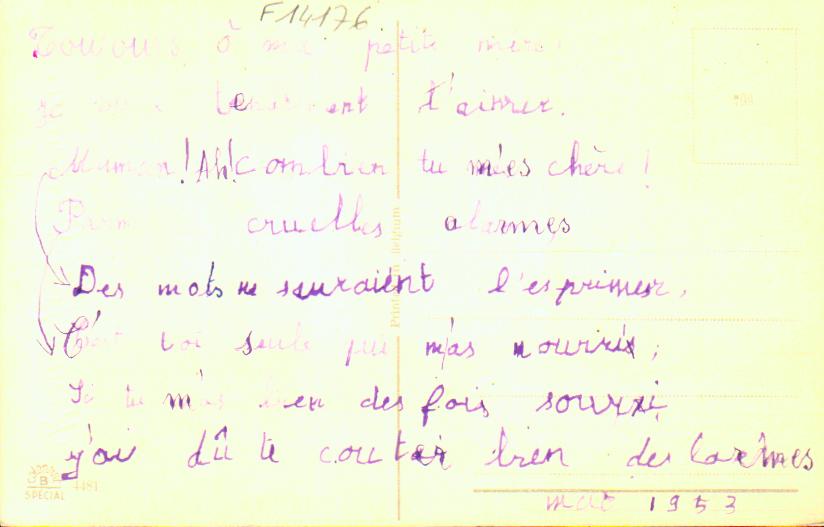 F14176
Toujours ô ma petite mère!
Je veux tendrement t'aimer.
Maman! Ah! Combien tu m'es chère!
Parmi cruelles alarmes
Des mots ne sauraient l'esprimer,
C'est toi seule qui m'as nourrix;
Si tu m'as bien des fois sourxi,
j'ai dû te couter bien des larmes
mai 1953
Printed in Belgium
B
SPECIAL 4481